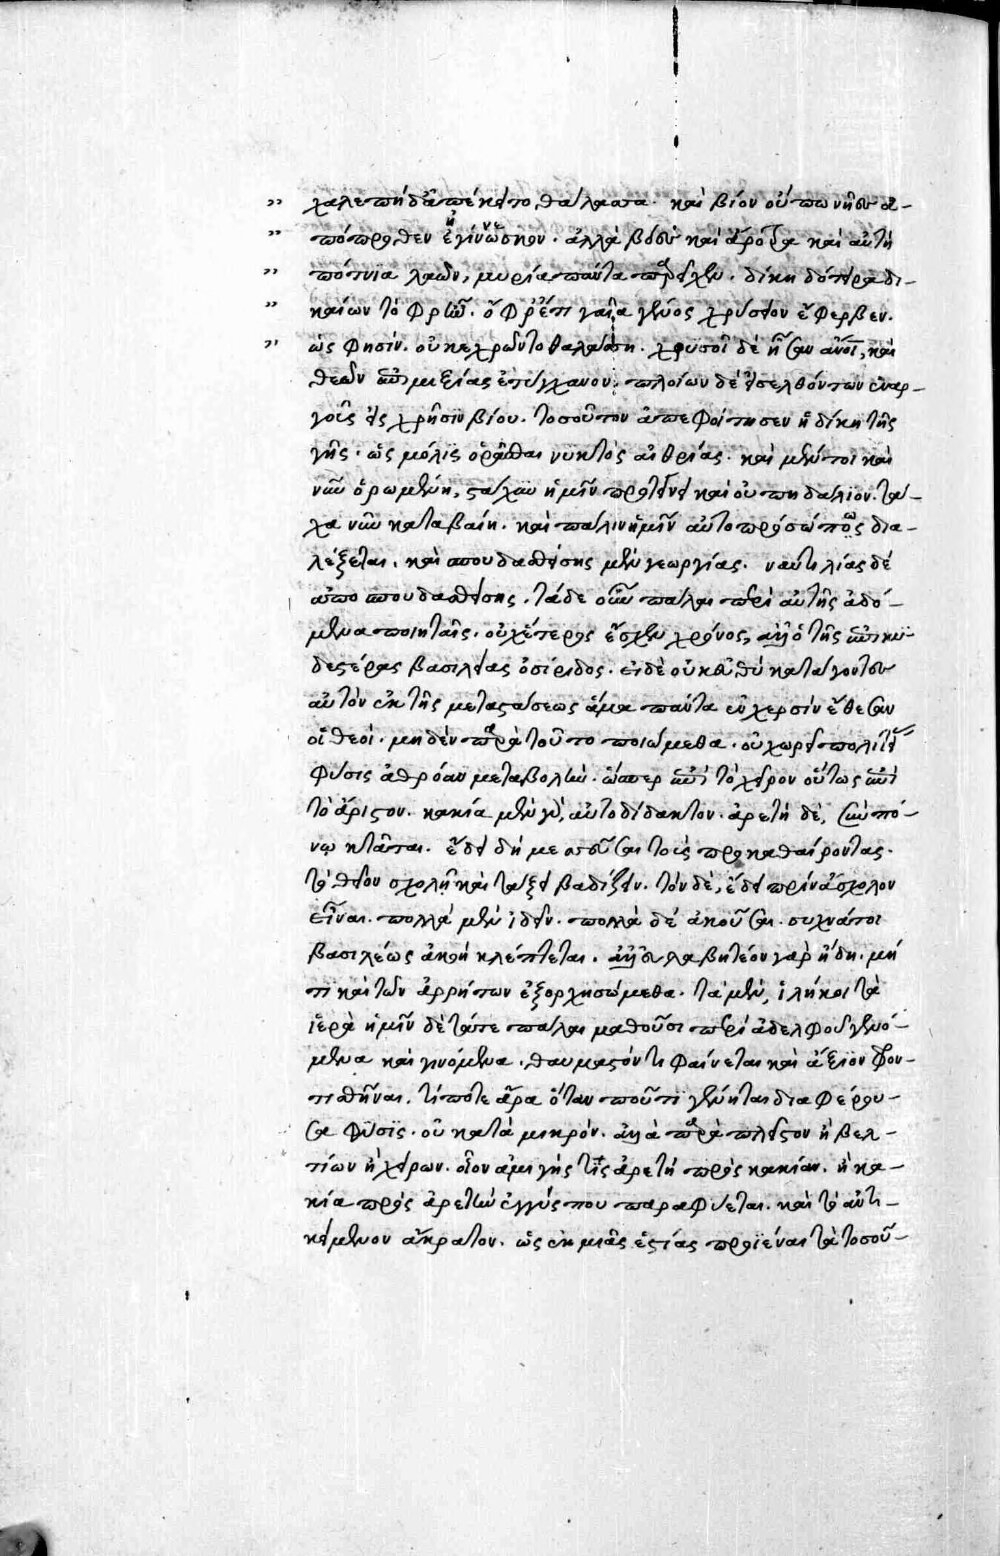 ” χαλεπὴ δ' ἀπέκειτο θάλασσα. καὶ βίον οὔπω νῆες ἀ-
” πόπροθεν ἐγίνωσκον. ἀλλὰ βόες καὶ ἄροτρα καὶ αὐτὴ
” πότνια λαῶν, μυρία πάντα παρεῖχεν. δίκη δότειρα δι-
” καίων τόφρ' ἦν. ὄφρ' ἔτι γαῖα γένος χρύσειον ἔφερβεν.
” ὥς φησιν. οὐκ ἐχρῶντο θαλάσση. χρυσοῖ δὲ ἦσαν ἄνθρωποι, καὶ
θεῶν ἐπιμιξίας ἐτύγχανον. πλοίων δὲ εἰσελθόντων ἐναρ-
γοῖς εἰς χρῆσιν βίου. τοσοῦτον ἀπεφοίτησεν ἡ δίκη τῆς
γῆς. ὡς μόλις ὁρᾶσθαι νυκτὸς αἰθρίας. καὶ μέντοι καὶ
νῦν ὁρωμένη, στάχυν ἡμῖν προτείνει καὶ οὐ πηδάλιον. τά-
χα νῦν καταβαίη. καὶ πάλιν ἡμῖν αὐτοπροσώπως δια-
λέξεται. καὶ σπουδασθείσης μὲν γεωργίας. ναυτιλίας δὲ
ἀποσπουδασθείσης. τάδε οὖν πάλαι περὶ αὐτῆς ἀδό-
μενα ποιηταῖς. οὐχ ἕτερος ἔσχεν χρόνος, ἀλλ' ὁ τῆς ἐπικυ-
δεστέρας βασιλείας ὀσίριδος. εἰ δὲ οὐκ εὐθὺ κατάγοντες
αὐτὸν ἐκ τῆς μεταστάσεως ἅμα πάντα ἐν χερσὶν ἔθεσαν
οἱ θεοί. μηδὲν παρὰ τοῦτο ποιώμεθα. οὐ χωρεῖ πολιτείας
φύσις ἀθρόαν μεταβολήν. ὥσπερ ἐπὶ τὸ χεῖρον οὕτως ἐπὶ
τὸ ἄριστον. κακία μὲν γὰρ, αὐτοδίδακτον. ἀρετὴ δὲ, σὺν πό-
νῳ κτᾶται. ἔδει δὴ μεσεῦσαι τοὺς προκαθαίροντας.
τὸ θεῖον σχολῇ καὶ τάξει βαδίζειν. τὸν δὲ, ἔδει πρὶν ἄσχολον
εἶναι. πολλὰ μὲν ἰδεῖν. πολλὰ δὲ ἀκοῦσαι. συχνά τοι
βασιλέως ἀκοὴ κλέπτεται. ἀλλ' εὐλαβητέον γὰρ ἤδη. μή
τι καὶ τῶν ἀρρήτων ἐξορχησώμεθα. τὰ μὲν, ἱλήκοι τὰ
ἱερὰ ἡμῖν δὲ τάτε πάλαι μαθοῦσι περὶ ἀδελφοῦ γενό-
μενα καὶ γινόμενα. θαυμαστόν τι φαίνεται καὶ ἄξιον φρον-
τισθῆναι. τί ποτε ἄρα ὅταν ποῦ τι γένηται διαφέρου-
σα φύσις. οὐ κατὰ μικρόν. ἀλλὰ παρὰ πλεῖστον ἢ βελ-
τίων ἢ χείρων. οἷον ἀμιγής τις ἀρετὴ πρὸς κακίαν. ἢ κα-
κία πρὸς ἀρετὴν ἐγγύς που παραφύεται. καὶ τὸ ἀντι-
κείμενον ἄκρατον. ὡς ἐκ μιᾶς ἑστίας προϊέναι τὰ τοσοῦ-